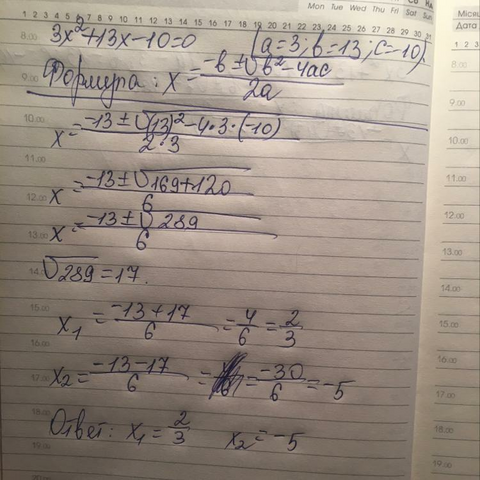 1 2 3 4 5 6 7 8 9 10 11 12 13 14 15 16 17 18 19 20 21 22 23 24 25 26 27 28 29 30 31
Mon Tue Wed Thu Fri Sat Sun
8.00 3x²+13x-10=0 (a=3; b=13; c=-10).
9.00 Формула: x = (-b ± √(b²-4ac)) / 2a
10.00 x = (-13 ± √((13)²-4·3·(-10))) / 2·3
11.00
12.00 x = (-13 ± √(169+120)) / 6
13.00 x = (-13 ± √289) / 6
14.00 √289 = 17.
15.00 x₁ = (-13+17) / 6 = 4/6 = 2/3
16.00
17.00 x₂ = (-13-17) / 6 = = -30/6 = -5
18.00
19.00 Ответ: x₁ = 2/3 x₂ = -5
Дата
1 2 3
8.00
9.00
10.00